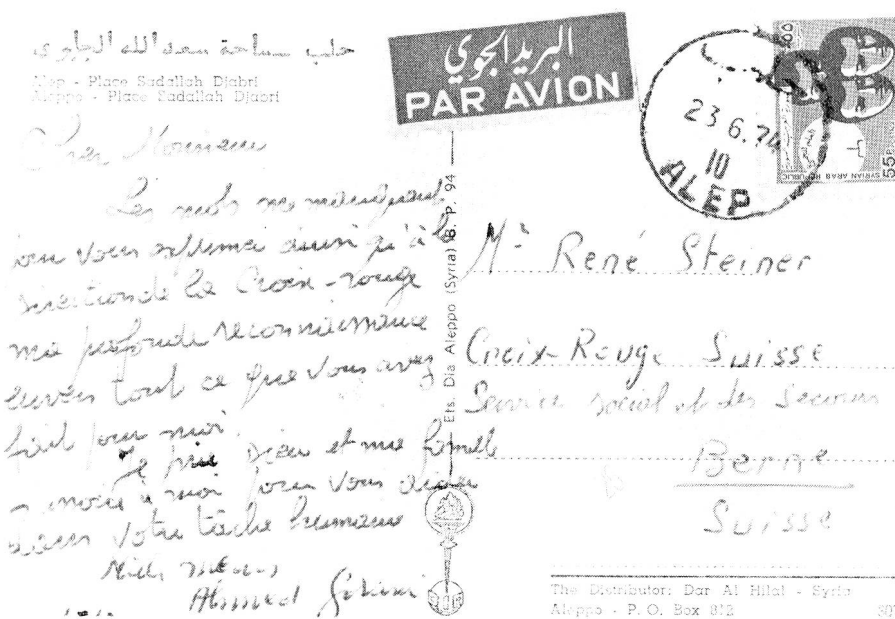 حلب ساحة سعد الله الجابري
Alep - Place Sadallah Djabri
Aleppo - Place Sadallah Djabri
Cher Monsieur
Les mots me manquent
pour vous exprimer ainsi qu'à la
direction de la Croix-rouge
ma profonde reconnaissance
envers tout ce que vous avez
fait pour moi.
Je prie Dieu et ma famille
à moi pour vous
dans votre tâche humaine
Mille
Ahmed
Ets. Dia Aleppo (Syria) B. P. 94
البريد الجوي
PAR AVION
23.6.74
10
ALEP
SYRIAN ARAB REPUBLIC
55 P.
Mr René Steiner
Croix-Rouge Suisse
Service social et des secours
Berne
Suisse
The Distributor: Dar Al Hilal - Syria
Aleppo - P. O. Box 812